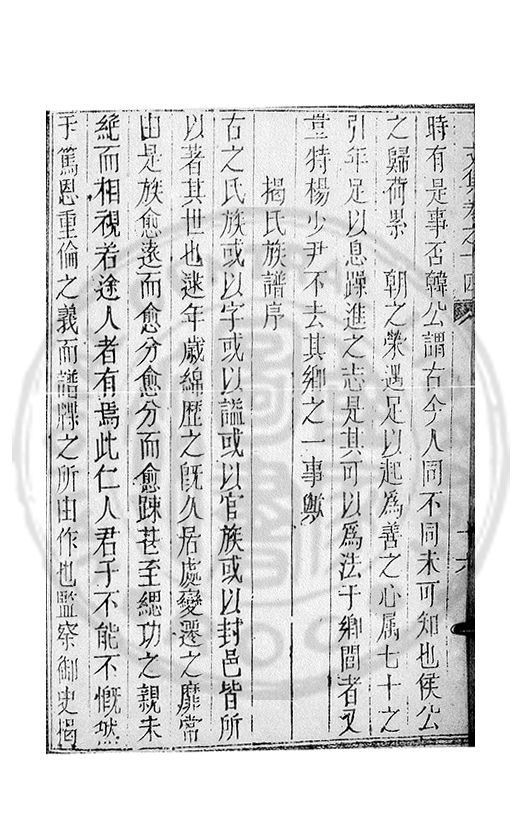 文集卷之十四
十六
時有是事否韓公謂古今人同不同未可知也侯公
之歸荷累 朝之榮遇足以起為善之心属七十之
引年足以息躁進之志是其可以為法于鄉閭者又
豈特楊少尹不去其鄉之一事歟
揭氏族譜序
古之氏族或以字或以謚或以官族或以封邑皆所
以著其世也逮年歲綿歷之旣久居處變遷之靡常
由是族愈遠而愈分愈分而愈踈甚至緦功之親未
絶而相視若途人者有焉此仁人君子不能不慨然
于篤恩重倫之義而譜牒之所由作也監察御史揭